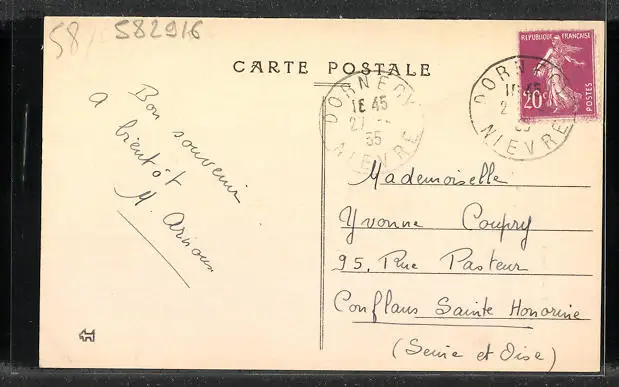 58/ 582916
CARTE POSTALE
REPUBLIQUE FRANÇAISE
20c
POSTES
DORNECY
16 45
27
35
NIEVRE
DORNECY
16 45
2
35
NIEVRE
Bon souvenir
a bientôt
M. Arnoux
Mademoiselle
Yvonne Coupry
95, Rue Pasteur
Conflans Sainte Honorine
(Seine et Oise)